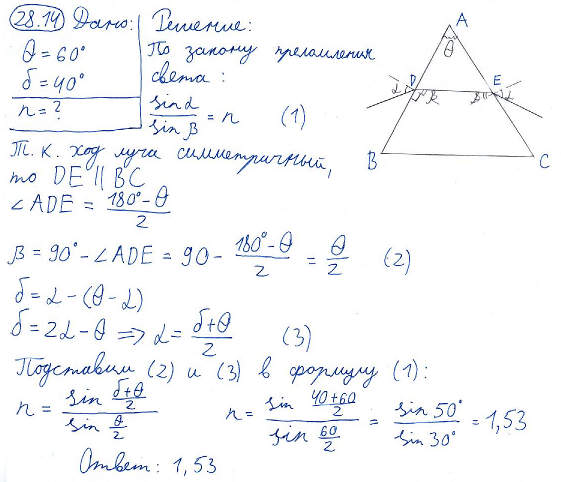 28.14 Дано:
θ = 60°
δ = 40°
n = ?
Решение:
По закону преломления
света:
sin α / sin β = n (1)
A
θ
D
E
α
β
β
α
B
C
Т. к. ход луча симметричный,
то DE || BC
∠ADE = (180° - θ) / 2
β = 90° - ∠ADE = 90 - (180° - θ) / 2 = θ / 2 (2)
δ = α - (θ - α)
δ = 2α - θ ⇒ α = (δ + θ) / 2 (3)
Подставим (2) и (3) в формулу (1):
n = sin (δ+θ)/2 / sin θ/2 n = sin (40+60)/2 / sin 60/2 = sin 50° / sin 30° = 1,53
Ответ: 1,53